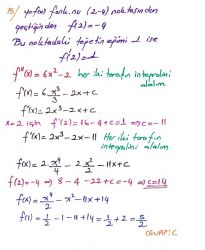 15/ y=f(x) fonk.nu (2,-4) noktasından
geçtiğinden f(2)=-4
Bu noktadaki teğetin eğimi 1 ise
f'(2)=1
f''(x)=6x²-2 her iki tarafın integralini alalım
f'(x)=6·x³/3-2x+c
f'(x)=2x³-2x+c
x=2 için f'(2)=16-4+c=1 ⇒ c=-11
f'(x)=2x³-2x-11 Her iki tarafın integralini alalım
f(x)=2·x⁴/4-2x²/2-11x+C
f(2)=-4 ⇒ 8-4-22+C=-4 ⇒ C=14
f(x)=x⁴/2-x²-11x+14
f(1)=1/2-1-11+14=1/2+2=5/2
CEVAP: C